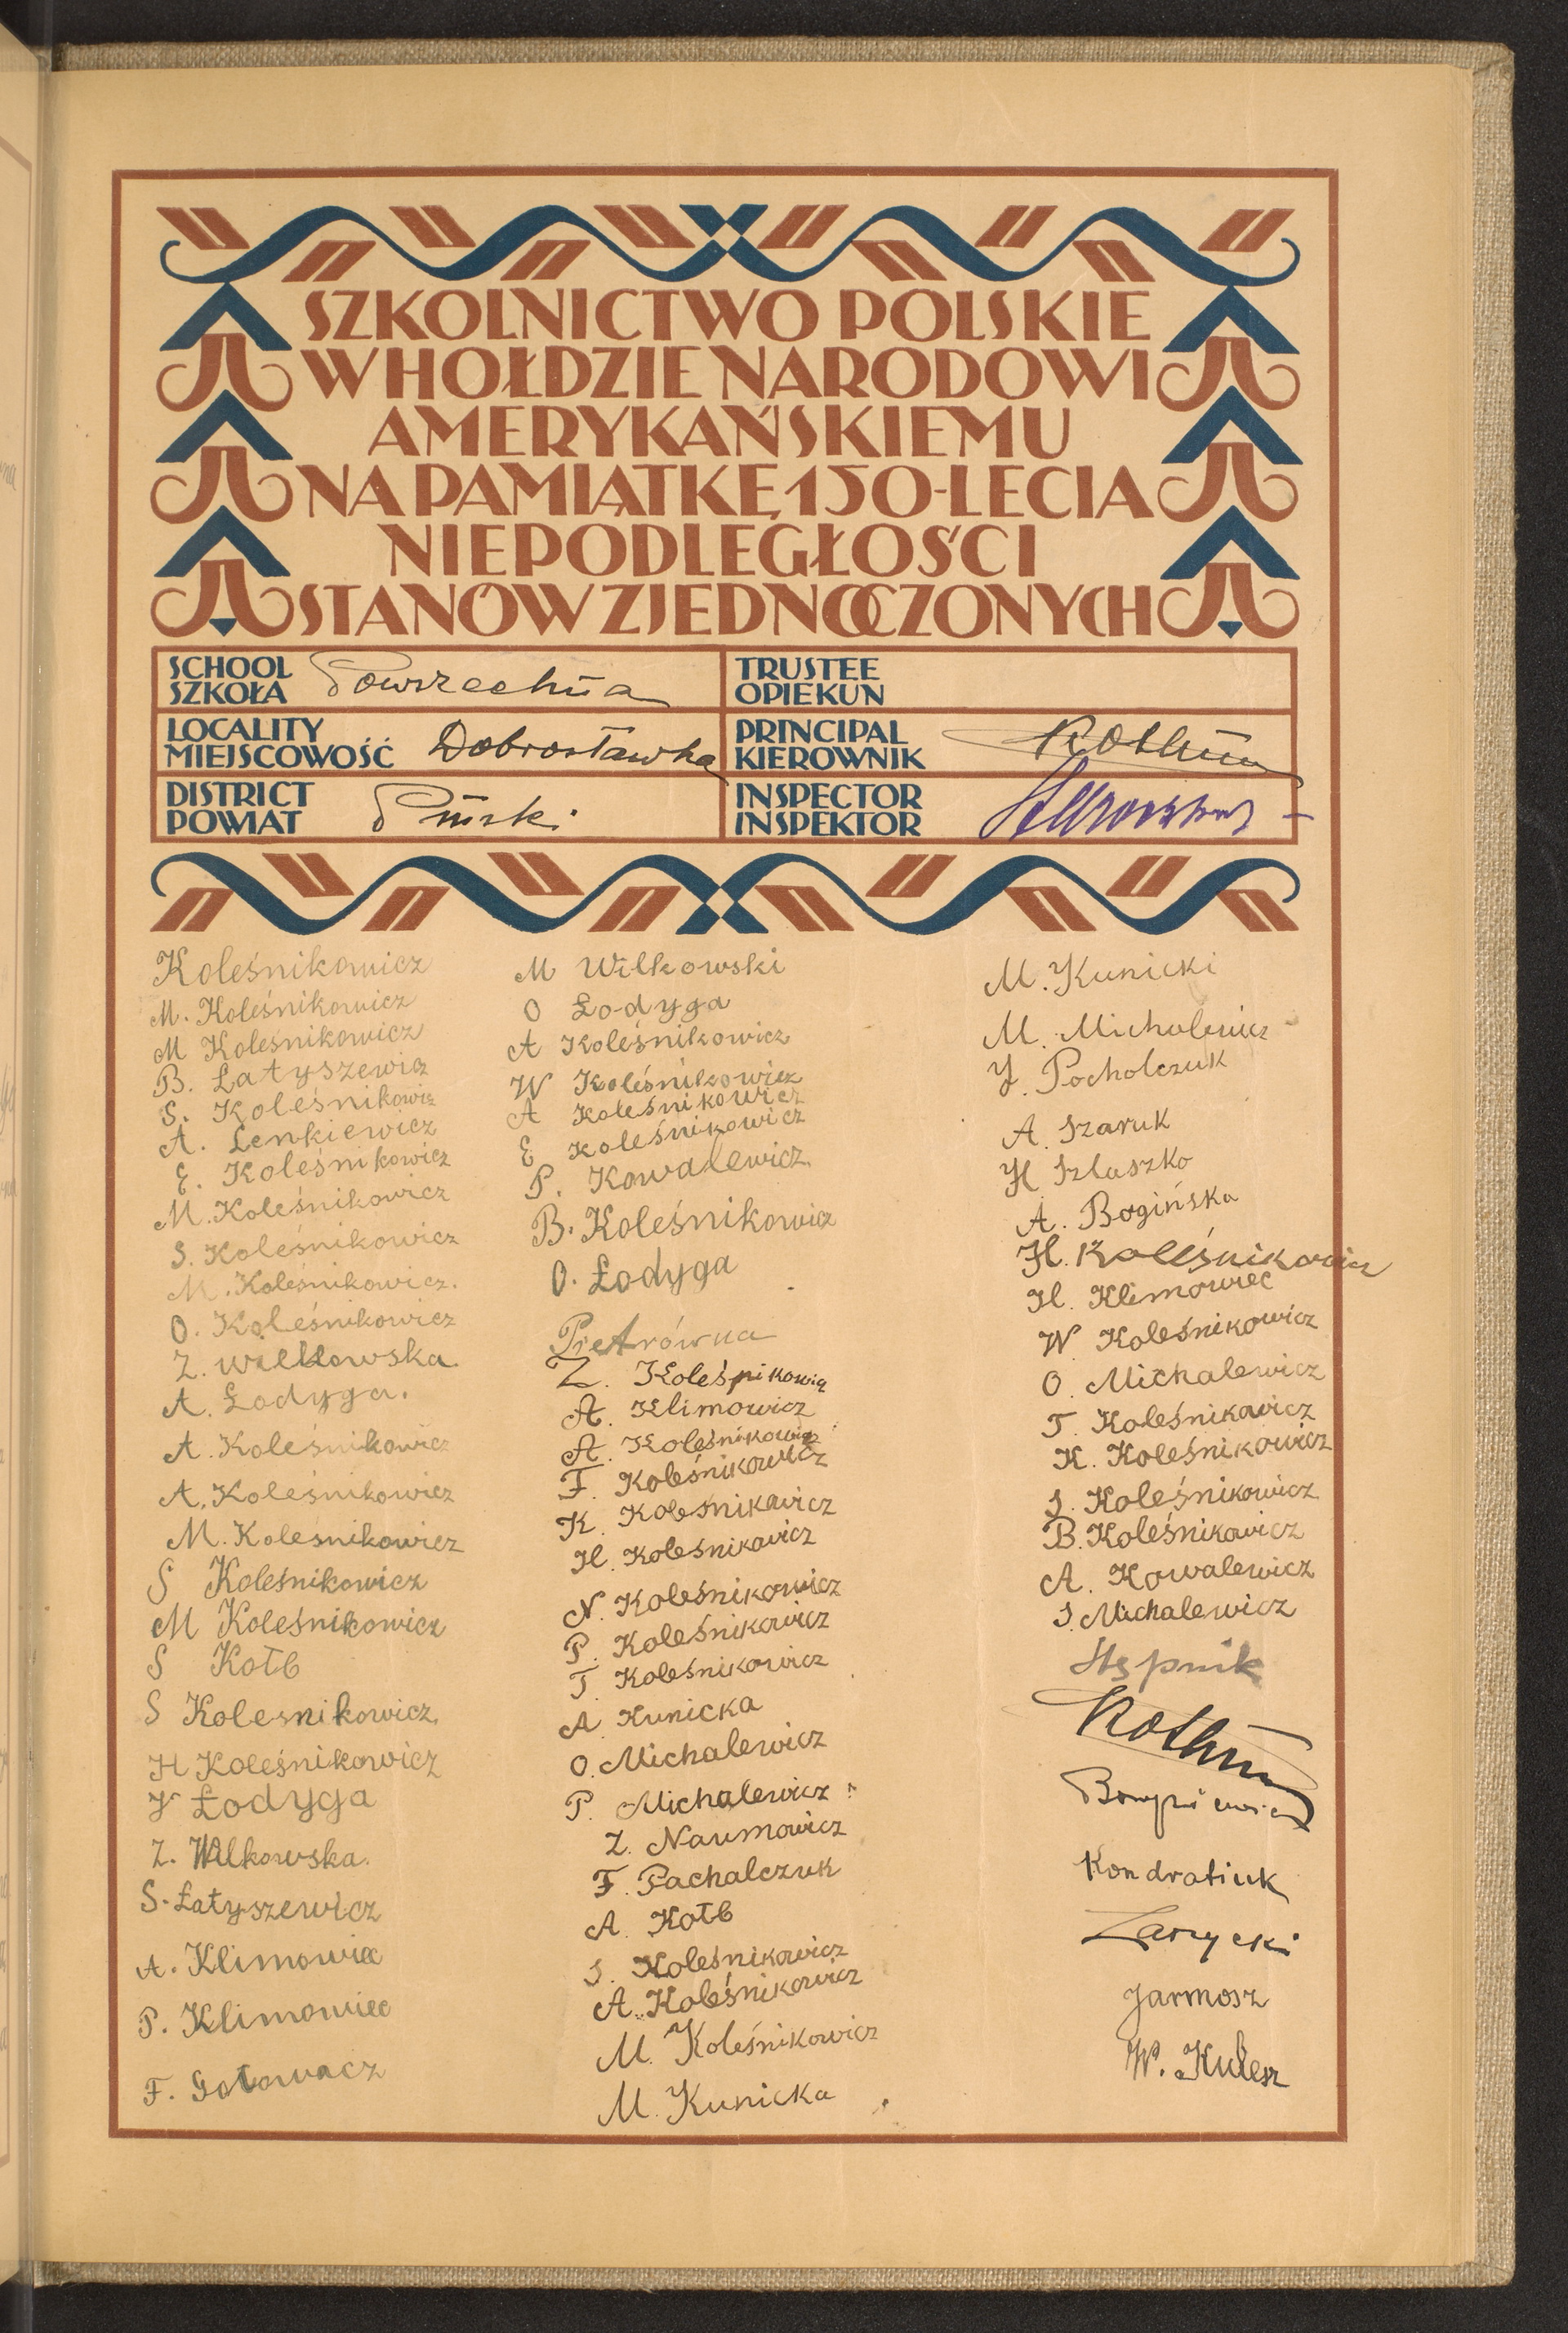 SZKOLNICTWO POLSKIE
W HOŁDZIE NARODOWI
AMERYKAŃSKIEMU
NA PAMIĄTKĘ 150-LECIA
NIEPODLEGŁOŚCI
STANÓW ZJEDNOCZONYCH
SCHOOL
SZKOŁA Powszechna
TRUSTEE
OPIEKUN
LOCALITY
MIEJSCOWOŚĆ Dobrosławka
PRINCIPAL
KIEROWNIK
DISTRICT
POWIAT Piński
INSPECTOR
INSPEKTOR
Koleśnikowicz
M. Koleśnikowicz
M Koleśnikowicz
B. Łatyszewicz
S. Koleśnikowicz
A. Lenkiewicz
E. Koleśnikowicz
M. Koleśnikowicz
S. Koleśnikowicz
M. Koleśnikowicz.
O. Koleśnikowicz
Z. Wilkowska.
A. Łodyga.
A. Koleśnikowicz
A. Koleśnikowicz
M. Kolesnikowicz
S Koleśnikowicz
M Koleśnikowicz
S Kołb
S Kolesnikowicz
H Koleśnikowicz
Łodyga
Z. Wilkowska.
S. Łatyszewicz
A. Klimowiec
P. Klimowiec
F. Gołowacz
M Wilkowski
O Łodyga
A Koleśnikowicz
W Koleśnikowicz
A Koleśnikowicz
E Koleśnikowicz
P. Kowalewicz.
B. Koleśnikowicz
O. Łodyga
Pietrówna
Z. Koleśnikowicz
A. Klimowicz
A. Koleśnikowicz
F. Koleśnikowicz
K. Koleśnikowicz
H. Koleśnikowicz
N. Koleśnikowicz
P. Koleśnikowicz
T. Koleśnikowicz
A Kunicka
O. Michalewicz
P. Michalewicz
Z. Naumowicz
F. Pachalczuk
A. Kołb
S. Koleśnikowicz
A. Koleśnikowicz
M. Koleśnikowicz
M. Kunicka
M. Kunicki
M. Michalewicz
J. Pocholczuk
A. Szaruk
H Szluszko
A. Bogińska
H. Koleśnikowicz
H. Klimowiec
W Koleśnikowicz
O. Michalewicz
T. Koleśnikowicz
K. Koleśnikowicz
S. Koleśnikowicz
B. Koleśnikowicz
A. Kowalewicz
S. Michalewicz
Stępnik
Kondratiuk
Zarycki
Jarmosz
W. Kulesz